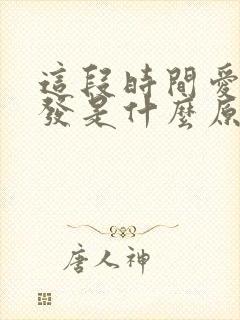 這段時間愛
發是什麼原
唐人神